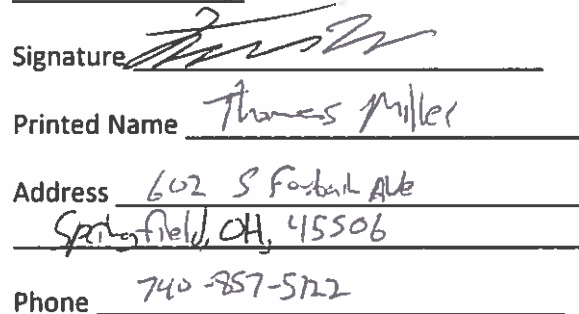 Signature
Printed Name Thomas Miller
Address 602 S Ave
Springfield, OH, 45506
Phone 740-857-5122